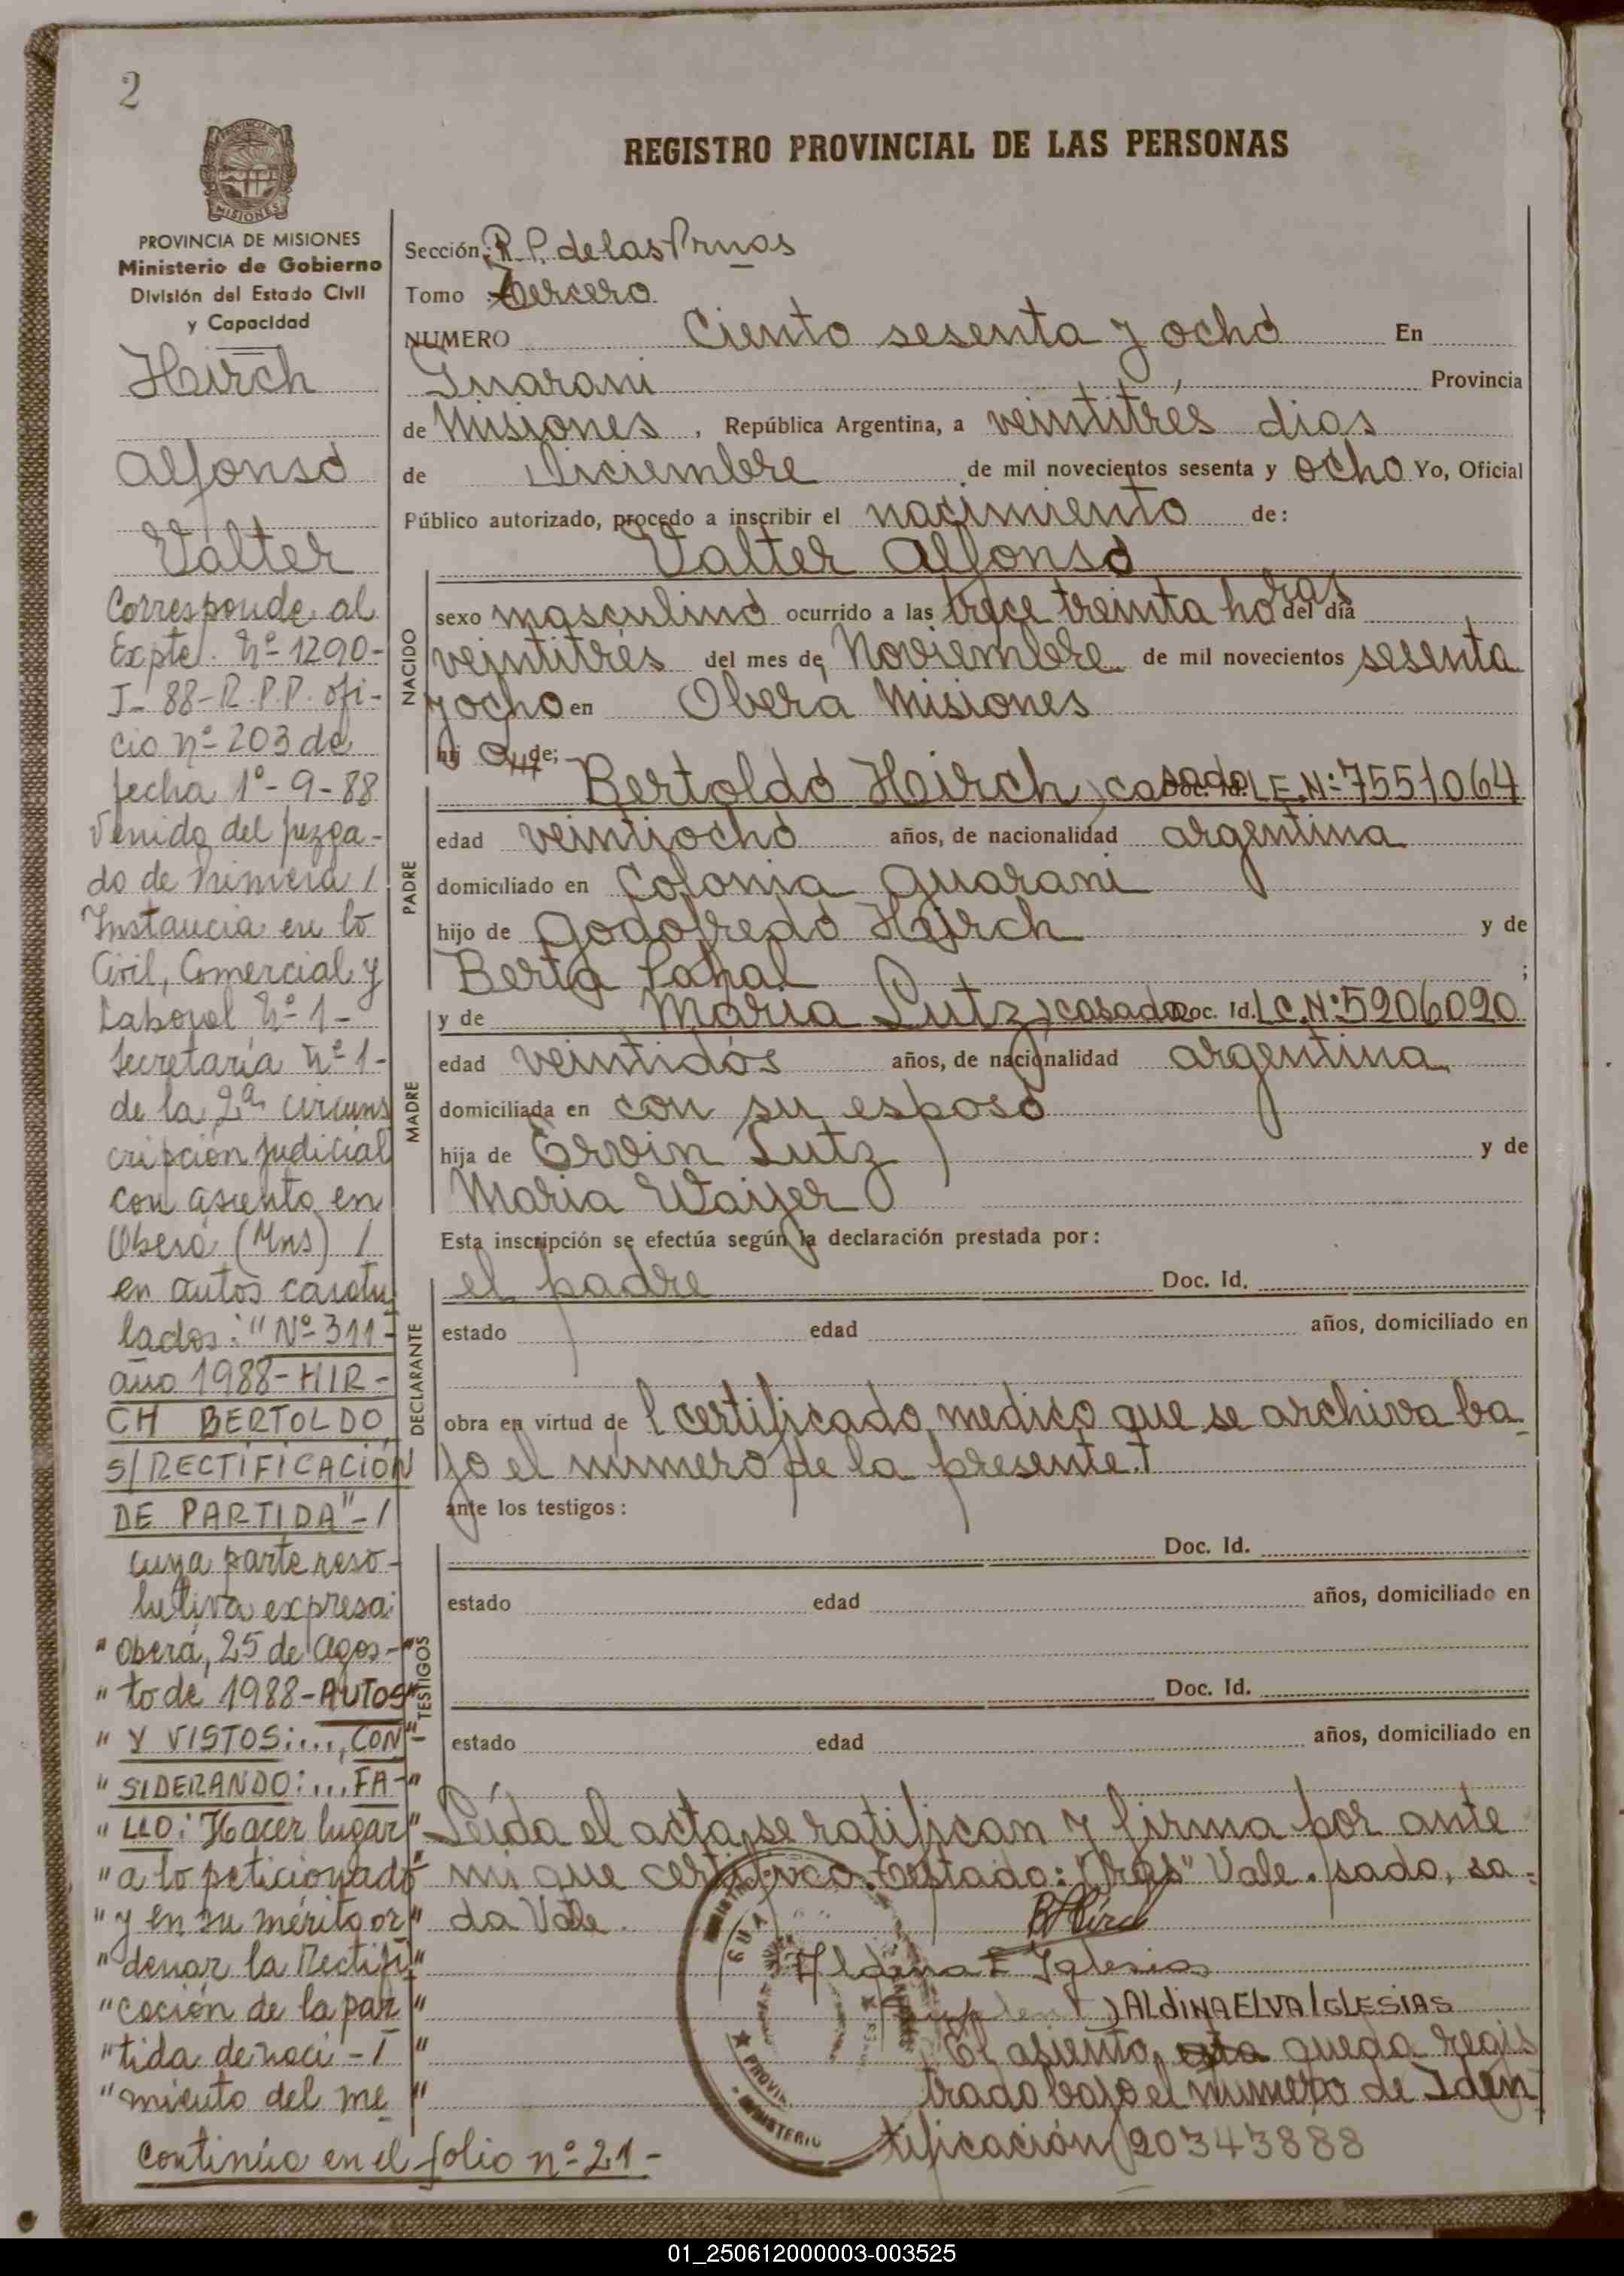 2
REGISTRO PROVINCIAL DE LAS PERSONAS
PROVINCIA DE MISIONES
MISIONES
PROVINCIA DE MISIONES
Ministerio de Gobierno
División del Estado Civil
y Capacidad
Hirch
Alfonso
Valter
Corresponde al
Expte. Nº 1290-
J- 88-R.P.P. ofi-
cio nº 203 de
fecha 1º-9-88
Venido del juzga-
do de Primera /
Instancia en lo
Civil, Comercial y
Laboral Nº 1-
Secretaría Nº 1-
de la 2ª circuns
cripción judicial
con asiento en
Oberá (Mns) /
en autos carátu
lados: "Nº 311-
año 1988-HIR-
CH BERTOLDO
S/RECTIFICACIÓN
DE PARTIDA"-/
cuya parte reso-
lutiva expresa:
" Oberá, 25 de Agos-"
" to de 1988-AUTOS"
" Y VISTOS:...., CON"-
" SIDERANDO:...FA-"
" LLO: Hacer lugar"
" a lo peticionado"
" y en su mérito or"
" denar la Rectifi"
" cación de la par "
" tida de naci-/ "
" miento del me "
Continúa en el folio nº 21-
Sección: R.P. de las Prnas
Tomo : Tercero
NUMERO Ciento sesenta y ocho En
Guarani Provincia
de Misiones, República Argentina, a veintitrés dias
de Diciembre de mil novecientos sesenta y ocho Yo, Oficial
Público autorizado, procedo a inscribir el nacimiento de:
Valter Alfonso
NACIDO
sexo masculino ocurrido a las trece treinta horas del día
veintitrés del mes de Noviembre de mil novecientos sesenta
y ocho en Obera Misiones
hij o de:
PADRE
Bertoldo Hirch, casado Doc. Id. L.E.N: 7551064
edad veintiocho años, de nacionalidad argentina
domiciliado en Colonia Guarani
hijo de Godofredo Hirch y de
Berta ;
MADRE
y de Maria Lutz, casada Doc. Id. L.C.N: 5206090
edad veintidós años, de nacionalidad argentina
domiciliada en con su esposo
hija de Ervin Lutz y de
Maria Waiyer
Esta inscripción se efectúa según la declaración prestada por:
DECLARANTE
el padre Doc. Id.
estado edad años, domiciliado en
obra en virtud de l certificado medico que se archiva ba
jo el numero de la presente.
ante los testigos:
TESTIGOS
Doc. Id.
estado edad años, domiciliado en
Doc. Id.
estado edad años, domiciliado en
Leída el acta, se ratifican y firma por ante
mi que certifico. Testado: "ras" Vale. sado, sa-
da Vale.
BHirch
Aldina E Iglesias
ALdiNA ELVA IGLESIAS
El asiento, queda regis
trado bajo el numero de Iden
tificación 20343888
PROVIN
MINISTERIO
01_250612000003-003525